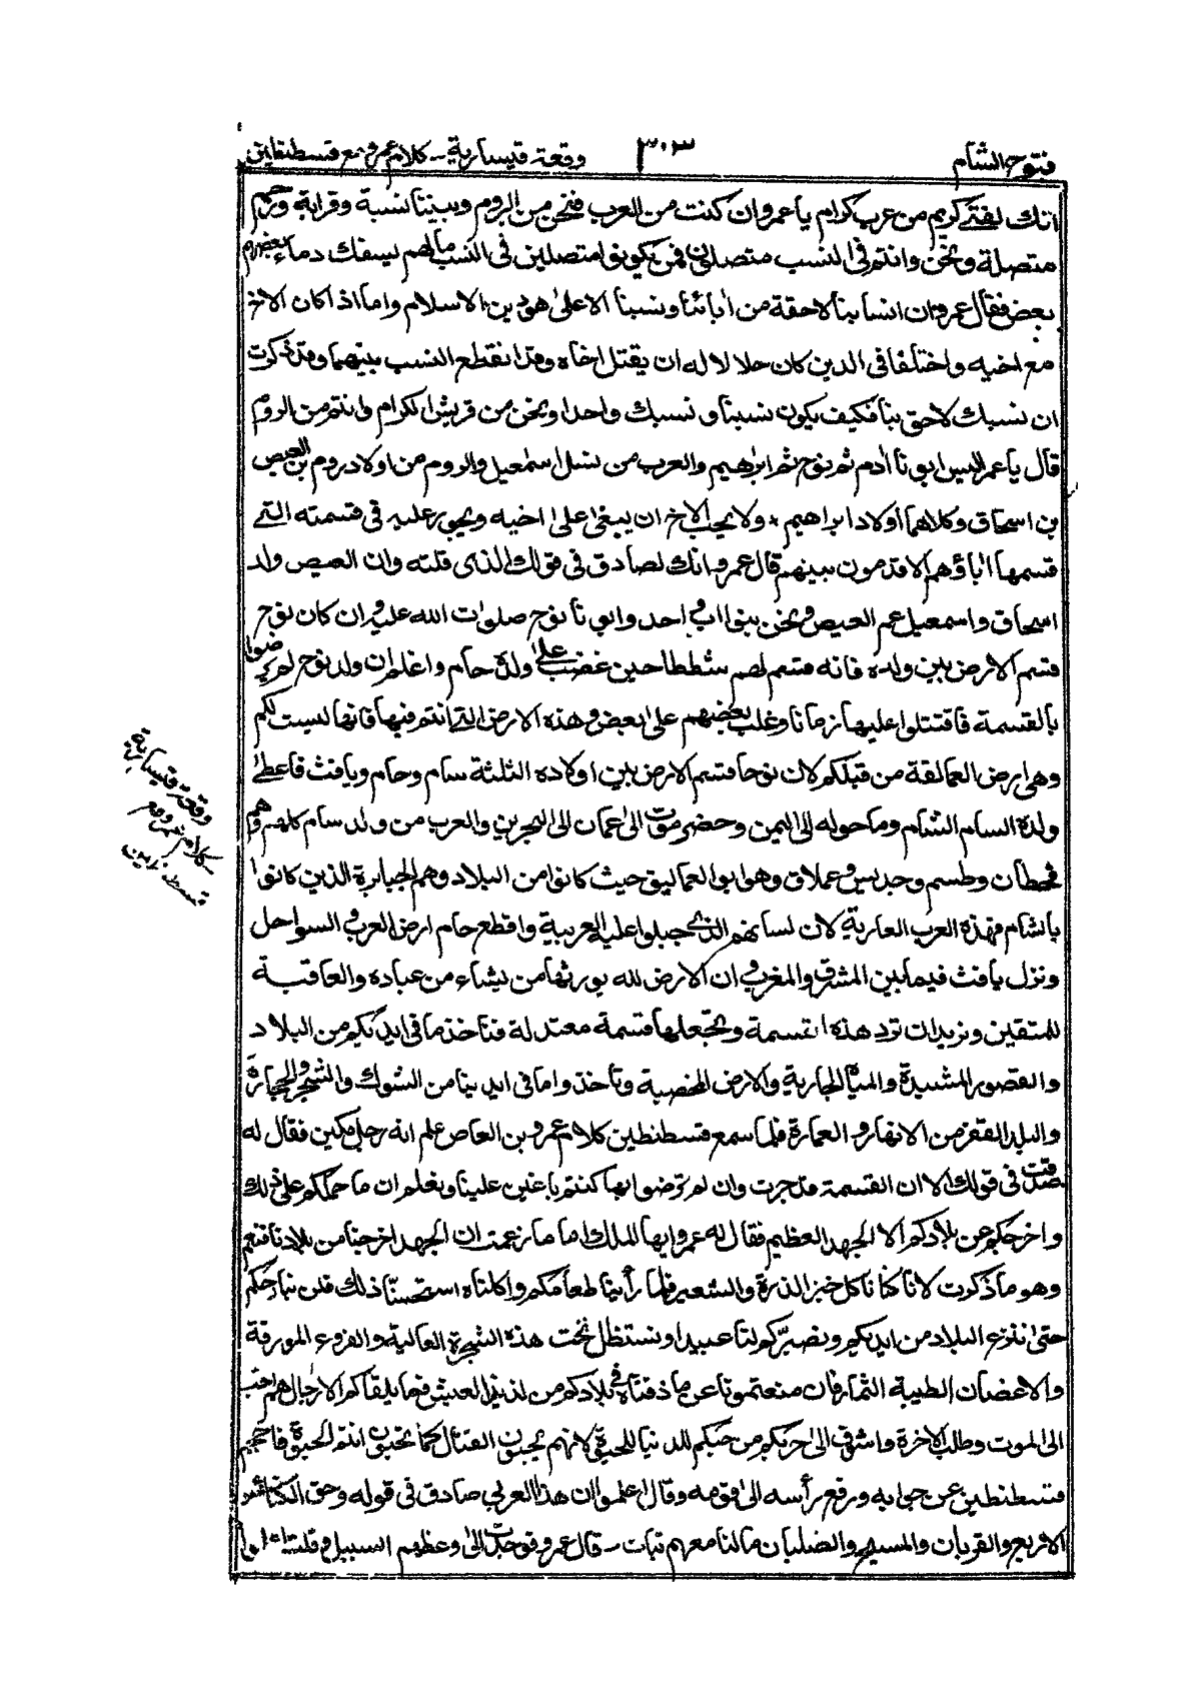 فتوح الشام ٣٠٣ وقعة قيسارية - كلام عمرو مع قسطنطين
انك لفتى كريم من عرب كرام يا عمرو ان كنت من العرب فنحن من الروم وبيننا نسبة وقرابة ورحم
متصلة ونحن وانتم في النسب متصلين فمن يكونوا متصلين في النسب ما لهم ليسفك دماء بعضهم
بعض فقال عمرو ان انسابنا لاحقة من اٰبائنا ونسبنا الاعلىٰ هو دين الاسلام واما اذا كان الاخ
مع اخيه واختلفا في الدين كان حلالا له ان يقتل اخاه وقد انقطع النسب بينهما وقد ذكرت
ان نسبك لاحق بنا فكيف يكون نسبنا ونسبك واحدا ونحن من قريش الكرام وانتم من الروم
قال يا عمر اليس ابونا اٰدم ثم نوح ثم ابراهيم والعرب من نسل اسمٰعيل والروم من اولاد روم بن العيص
بن اسحاق وكلاهما اولاد ابراهيم ولا يجب الاخ ان يبغي علىٰ اخيه ويجور عليه في قسمته التي
قسمها اٰباؤهم الاقدمون بينهم قال عمرو انك لصادق في قولك الذى قلته وان العيص ولد
اسحاق واسمعيل عم العيص ونحن بنوا اب واحد وابونا نوح صلوات الله عليه وان كان نوح
قسم الارض بين ولده فانه قسم لهم شططا حين غضب علىٰ ولده حام واعلم ان ولد نوح لم يرضوا
بالقسمة فاقتتلوا عليها زمانا وغلب بعضهم علىٰ بعض وهذه الارض التي انتم فيها فانها ليست لكم
وهي ارض العمالقة من قبلكم لان نوحا قسم الارض بين اولاده الثلثة سام وحام ويافث فاعطىٰ
ولده السام الشام وما حوله الى اليمن وحضرموت الى عمان الى البحرين والعرب من ولد سام كلهم وهم
قحطان وطسم وجديس وعملاق وهو ابو العماليق حيث كانوا من البلاد وهم الجبابرة الذين كانوا
بالشام فهذه العرب العاربة لان لسانهم الذي جبلوا عليه العربية واقطع حام ارض العرب والسواحل
ونزل يافث فيما بين المشرق والمغرب وان الارض لله يورثها من يشاء من عباده والعاقبة
للمتقين ونريد ان نرد هذه القسمة ونجعلها قسمة معتدلة فناخذ ما في ايديكم من البلاد
والقصور المشيدة والمياه الجارية والارض المخصبة وتأخذوا ما في ايدينا من الشوك والشجر والحجارة
والبلد القفر من الانهار والعمارة فلما سمع قسطنطين كلام عمرو بن العاص علم انه رجل مكين فقال له
صدقت في قولك الا ان القسمة قد جرت وان لم ترضوا بها كنتم باغين علينا ونعلم ان ما حملكم علىٰ ذلك
واخرجكم عن بلادكم الا الجهد العظيم فقال له عمرو ايها الملك اما ما زعمت ان الجهد اخرجنا من بلادنا فنعم
وهو ما ذكرت لانا كنا ناكل خبز الذرة والشعير فلما رأينا طعامكم واكلناه استحسنّا ذلك فلن نبارحكم
حتىٰ ننتزع البلاد من ايديكم ونصيّركم لنا عبيدا ونستظل تحت هذه الشجرة العالية والفروع المورقة
والاغصان الطيبة الثمار فان منعتمونا عن ما ذقناه في بلادكم من لذيذ العيش فما يلقاكم الا رجال هم احب
الى الموت وطلب الاخرة واشوق الىٰ حربكم من حبكم للدنيا للحيوة لانهم يحبون القتال كما تحبون انتم الحيوة فاحجم
قسطنطين عن جوابه ورفع رأسه الىٰ قومه وقال اعلموا ان هذا العربي صادق في قوله وحق الكنائس
الاربع والقربان والمسيح والصلبان ما لنا معهم ثبات - قال عمرو فوجدت الىٰ وعظهم السبيل وقلت
وقعة قيسارية
كلام عمرو مع
قسطنطين